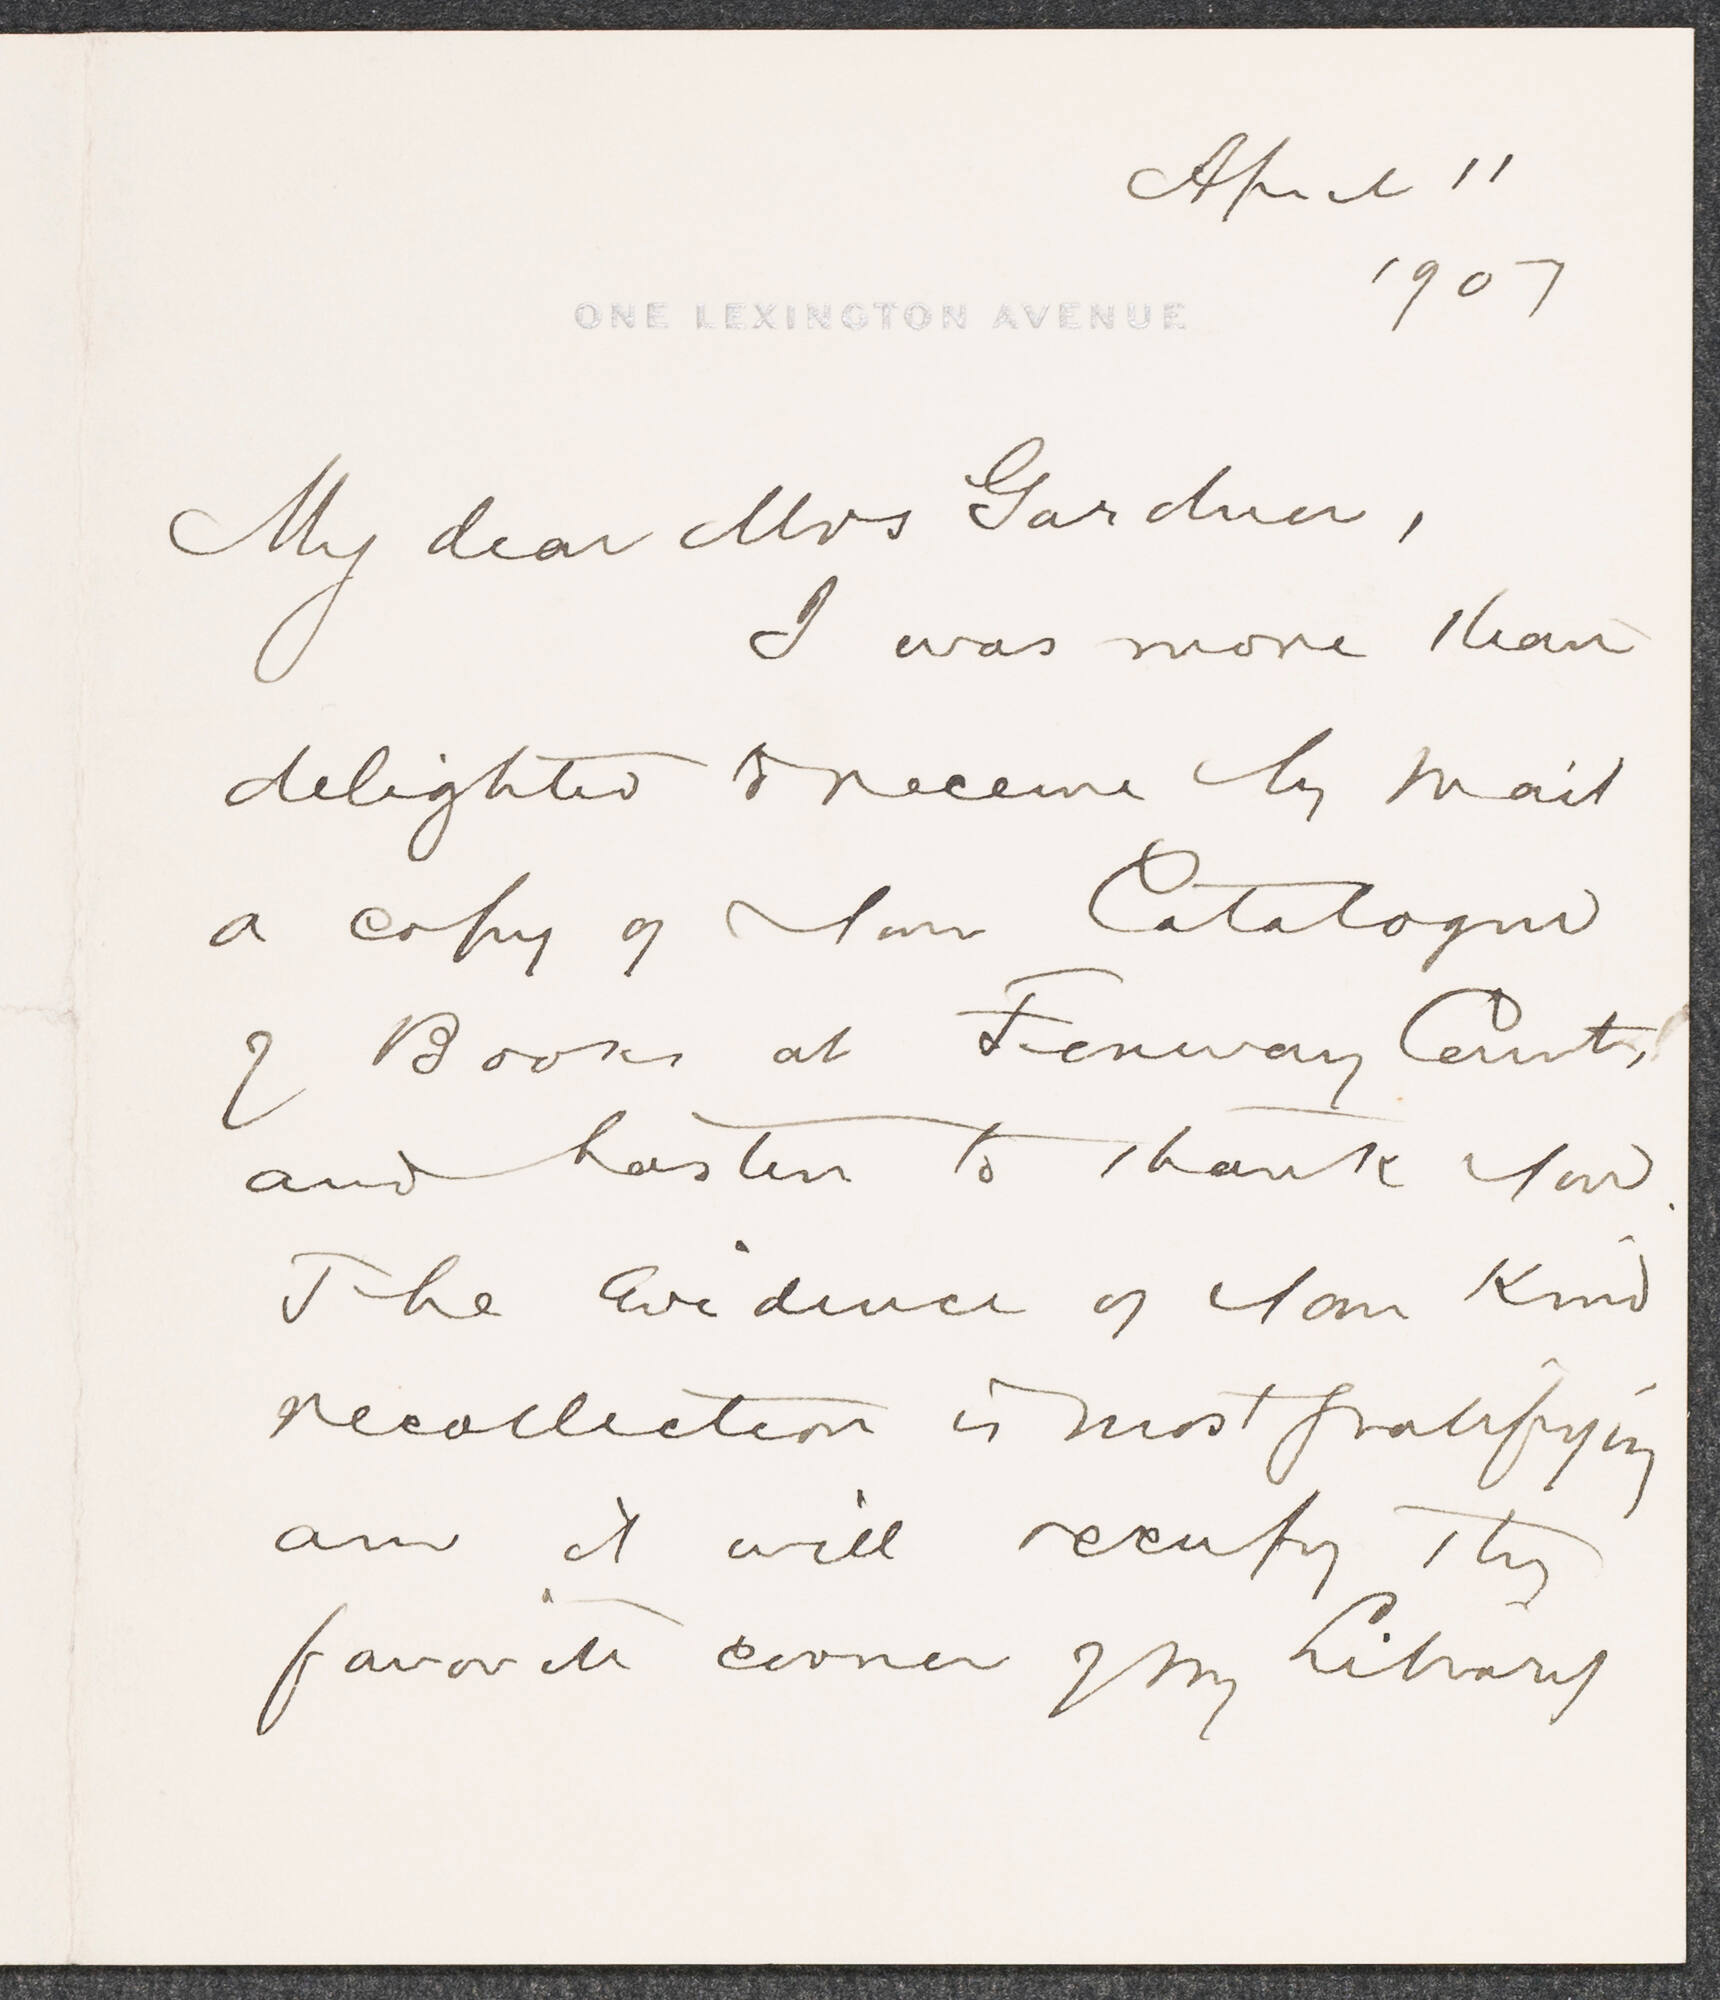 April 11
1907
ONE LEXINGTON AVENUE
My dear Mrs Gardner,
I was more than
delighted to receive by mail
a copy of your Catalogue
of Books at Fenway Court,
and hasten to thank you.
The evidence of your kind
recollection is most gratifying
and it will occupy the
favorite corner of my Library